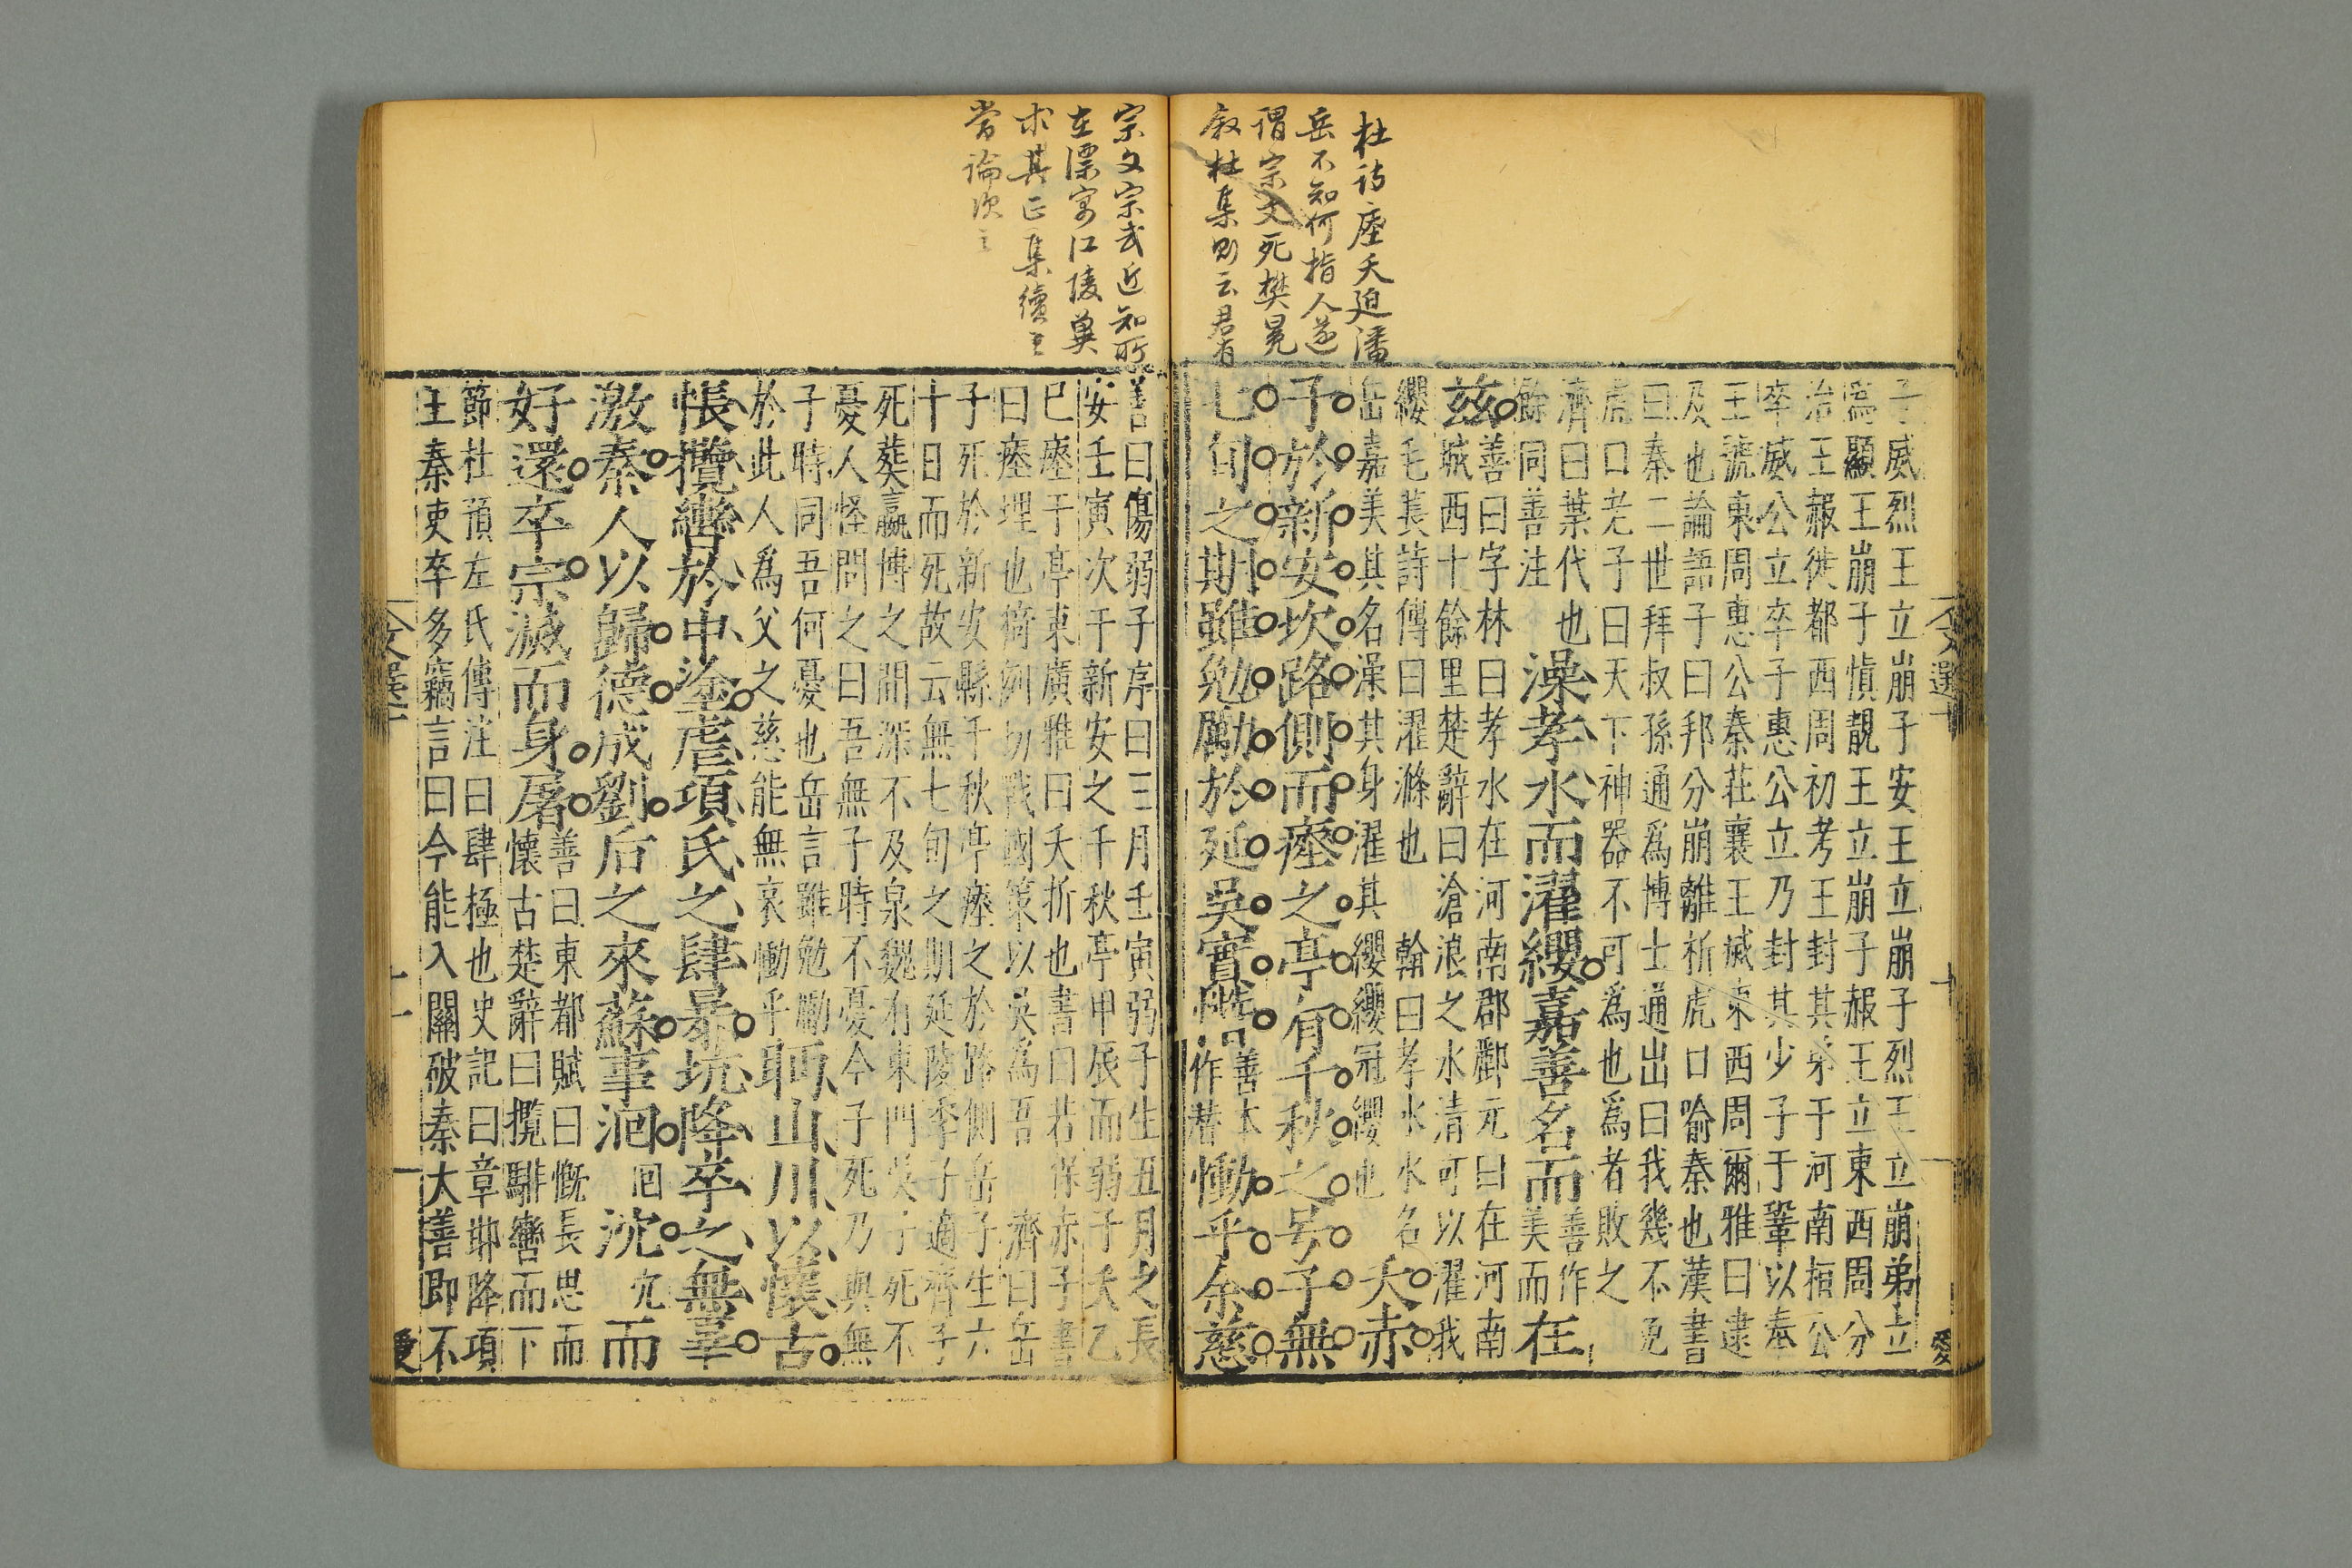 杜詩瘞夭追潘
岳不知何指人遂
謂宗文死樊晃
叙杜集則云君有
宗文宗武近知所
在漂寓江陵冀
求其正集續至
當論次之
文選十
十
愛
子威烈王立崩子安王立崩子烈王立崩弟立
爲顯王崩子慎靚王立崩子赧王立東西周分
治王赧徙都西周初考王封其弟于河南桓公
卒威公立卒子惠公立乃封其少子于鞏以奉
王號東周惠公秦莊襄王滅東西周爾雅曰逮
及也論語子曰邦分崩離析虎口喻秦也漢書
曰秦二世拜叔孫通爲博士通出曰我幾不免
虎口老子曰天下神器不可爲也爲者敗之
濟曰葉代也
餘同善注
澡孝水而濯纓嘉善名而
善作
美而
在
兹
善曰字林曰孝水在河南郡酈元曰在河南
城西十餘里楚辭曰滄浪之水清可以濯我
纓毛萇詩傳曰濯滌也 翰曰孝水水名
岳嘉美其名澡其身濯其纓纓冠纓也
夭赤
子於新安坎路側而瘞之亭有千秋之号子無
七旬之期雖勉勵於延吳實潛
善本
作潜
慟乎余慈
善曰傷弱子序曰三月壬寅弱子生五月之長
安壬寅次于新安之千秋亭甲辰而弱子夭乙
巳瘞于亭東廣雅曰夭折也書曰若保赤子書
曰瘞埋也 戰國策以吳爲吾 濟曰岳
子死於新安縣千秋亭瘞之於路側岳子生六
十日而死故云無七旬之期延陵季子適齊子
死葬嬴博之間深不及泉魏有東門吳子死不
憂人怪問之曰吾無子時不憂今子死乃與無
子時同吾何憂也岳言雖勉勵
於此人爲父之慈能無哀慟乎
眄山川以懷古
悵攬轡於中塗虐項氏之肆暴坑降卒之無辜
激秦人以歸德成劉后之來蘇事洄
回
沇
宂
而
好還卒宗滅而身屠
善曰東都賦曰慨長思而
懷古楚辭曰攬騑轡而下
節杜預左氏傳注曰肆極也史記曰章邯降項
王秦吏卒多竊言曰今能入關破秦大善即不
文選十
十一
愛